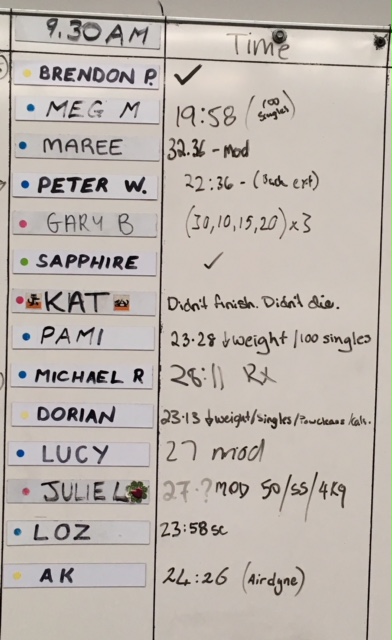 9.30AM Time
BRENDON P. ✓
MEG M 19:58 (100 singles)
MAREE 32.36 - Mod
PETER W. 22:36 - (Back ext)
GARY B (30,10,15,20) x 3
SAPPHIRE ✓
KAT Didn't finish. Didn't die.
PAMI 23.28 ↓weight/100 singles
MICHAEL R 28:11 RX
DORIAN 23.13 ↓weight/singles/
LUCY 27 mod
JULIE L 27.? MOD 50/SS/4kg
LOZ 23:58 sc
AK 24:26 (Airdyne)